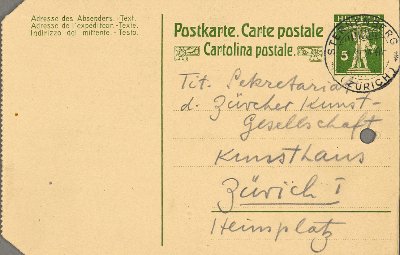 Adresse des Absenders. - Text.
Adresse de l'expéditeur. - Texte.
Indirizzo del mittente. - Testo.
Postkarte. Carte postale
Cartolina postale.
HELVETIA
5
STERNENBERG
(ZÜRICH)
Tit. Sekretariat
d. Zürcher Kunst-
Gesellschaft
Kunsthaus
Zürich I
Heimplatz